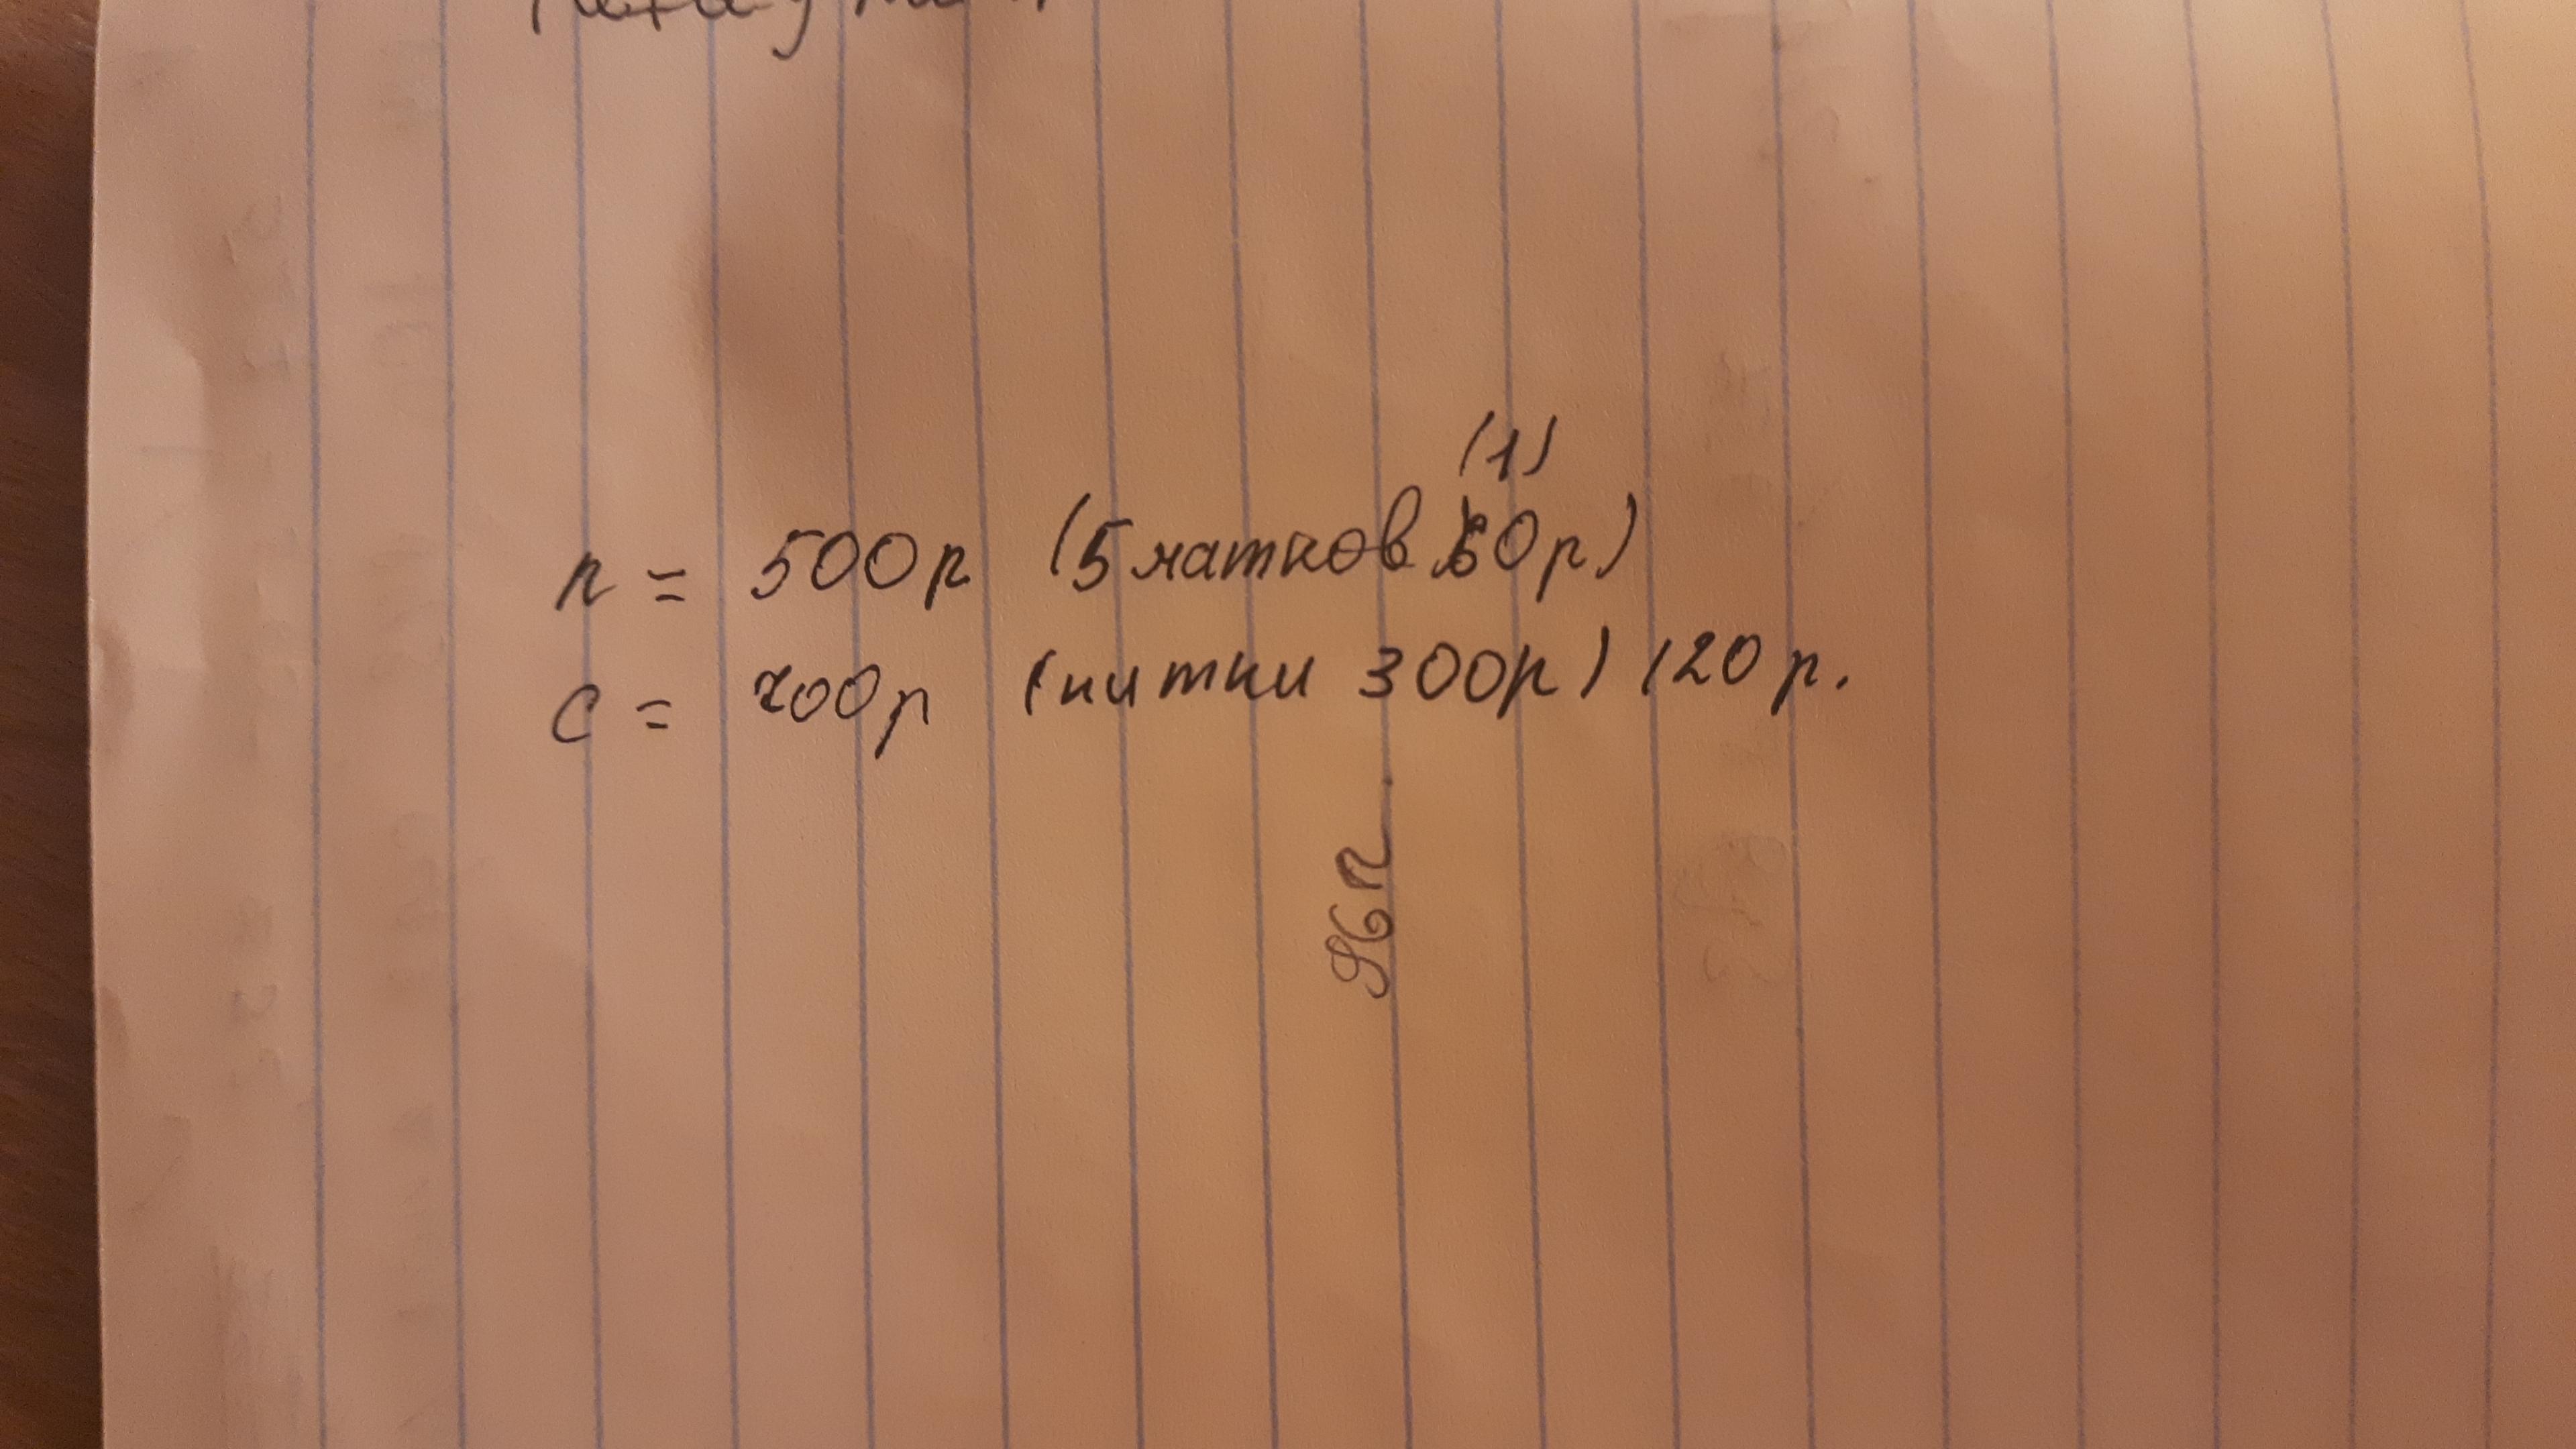 (1)
п = 500р (5 матков 60р)
с = 700р (нитки 300р) 120 р.
96 п